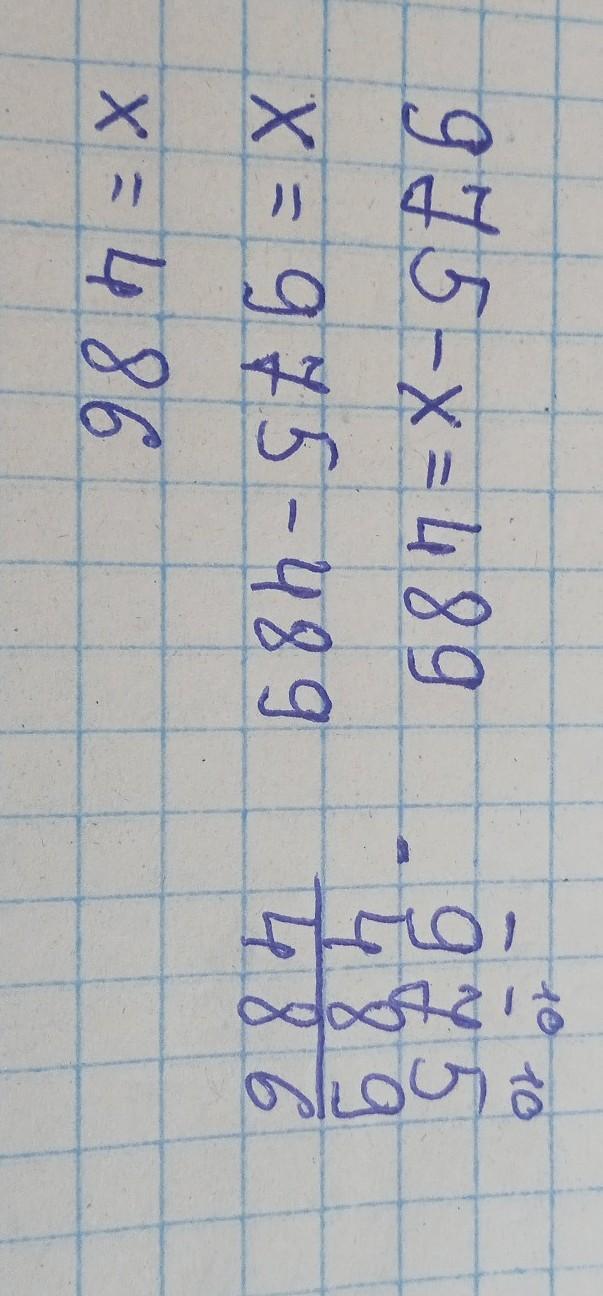 975-x=489
x=975-489
x=486
- 10 10
- 975
489
486